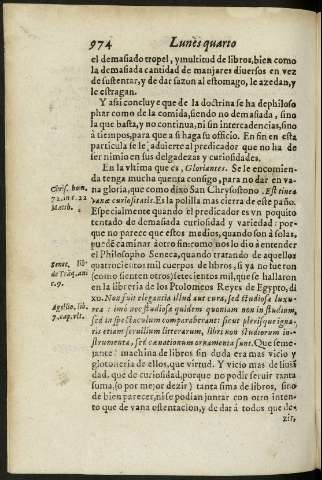 974 Lunes quarto
el demasiado tropel, y multitud de libros, bien como
la demasiada cantidad de manjares diuersos en vez
de sustentar, y de dar sazon al estomago, le azedan, y
le estragan.
Y assi concluye que de la doctrina se ha de philoso
phar como de la comida, siendo no demasiada, sino
la que basta, y no continua, ni sin intercadencias, sino
a tiempos, para que a si haga su officio. En fin en esta
particula se le aduierte al predicador que no ha de
ser nimio en sus delgadezas y curiosidades.
En la vltima que es, Gloriantes. Se le encomien-
da tenga mucha cuenta consigo, para no dar en va-
na gloria, que como dixo San Chrysostomo. Est tinea
vanæ curiositatis. Es la polilla mas cierra de este paño.
Chris. hom.
72. in c. 22
Matth.
Especialmente quando el predicador es vn poquito
tentado de demasiada curiosidad y variedad: por-
que no parece que estos medios, quando son à solas,
puedē caminar à otro fin: como nos lo dio à entender
el Philosopho Seneca, quando tratando de aquellos
quatrocientos mil cuerpos de libros, si ya no fueron
(como sienten otros) setecientos mil, que se hallaron
en la libreria de los Ptolomeos Reyes de Egypto, di
xo. Non fuit elegantia illud aut cura, sed studiosa luxu-
ria: imò nec studiosa quidem quoniam non in studium,
sed in spectaculum comparaberant: sicut plerisque igna-
ris etiam seruilium litterarum, libri non studiorum in-
strumenta, sed cænationum ornamenta sunt. Que seme-
Senec. lib.
de Trāq. ani
c. 9.
Agellio. lib.
7. cap. vlt.
jante machina de libros sin duda era mas vicio y
glotoneria de ellos, que virtud. Y vicio mas de liuiā
dad, que de curiosidad, porque no podiē seruir tanta
suma, (o por mejor dezir) tanta sima de libros, sino
de bien parecer, ni se podian juntar con otro inten-
to que de vana ostentacion, y de dar à todos que de-
zir,